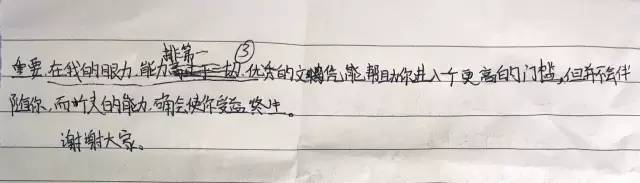 排第一 ③
重要,在我的眼力,能力 优秀的文凭,能帮助你进入个更高的门槛,但并不会伴
随你,而 的能力,确会使你受益终生。
谢谢大家。